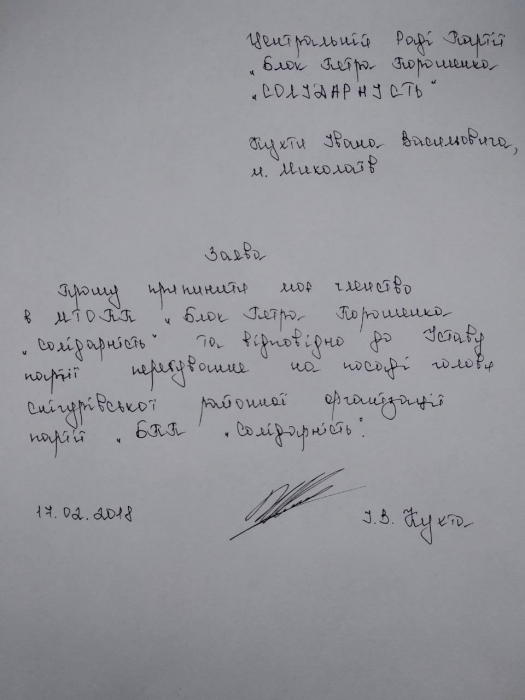 Центральній Раді Партії
„Блок Петра Порошенка
„СОЛІДАРНІСТЬ"
Кухти Івана Васильовича,
м. Миколаїв
Заява
Прошу припинити моє членство
в МТОПП „Блок Петра Порошенка
„Солідарність" та відповідно до Уставу
партії перебування на посаді голови
Снігурівської районної організації
партії „БПП „Солідарність".
17.02.2018
І.В. Кухта